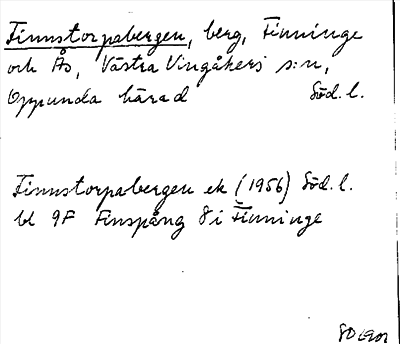 Finnstorpabergen, berg, Finninge
och Ås, Västra Vingåkers s:n,
Oppunda härad Söd. l.
Finnstorpabergen ek (1956) Söd. l.
bl 9F Finspång 8 i Finninge